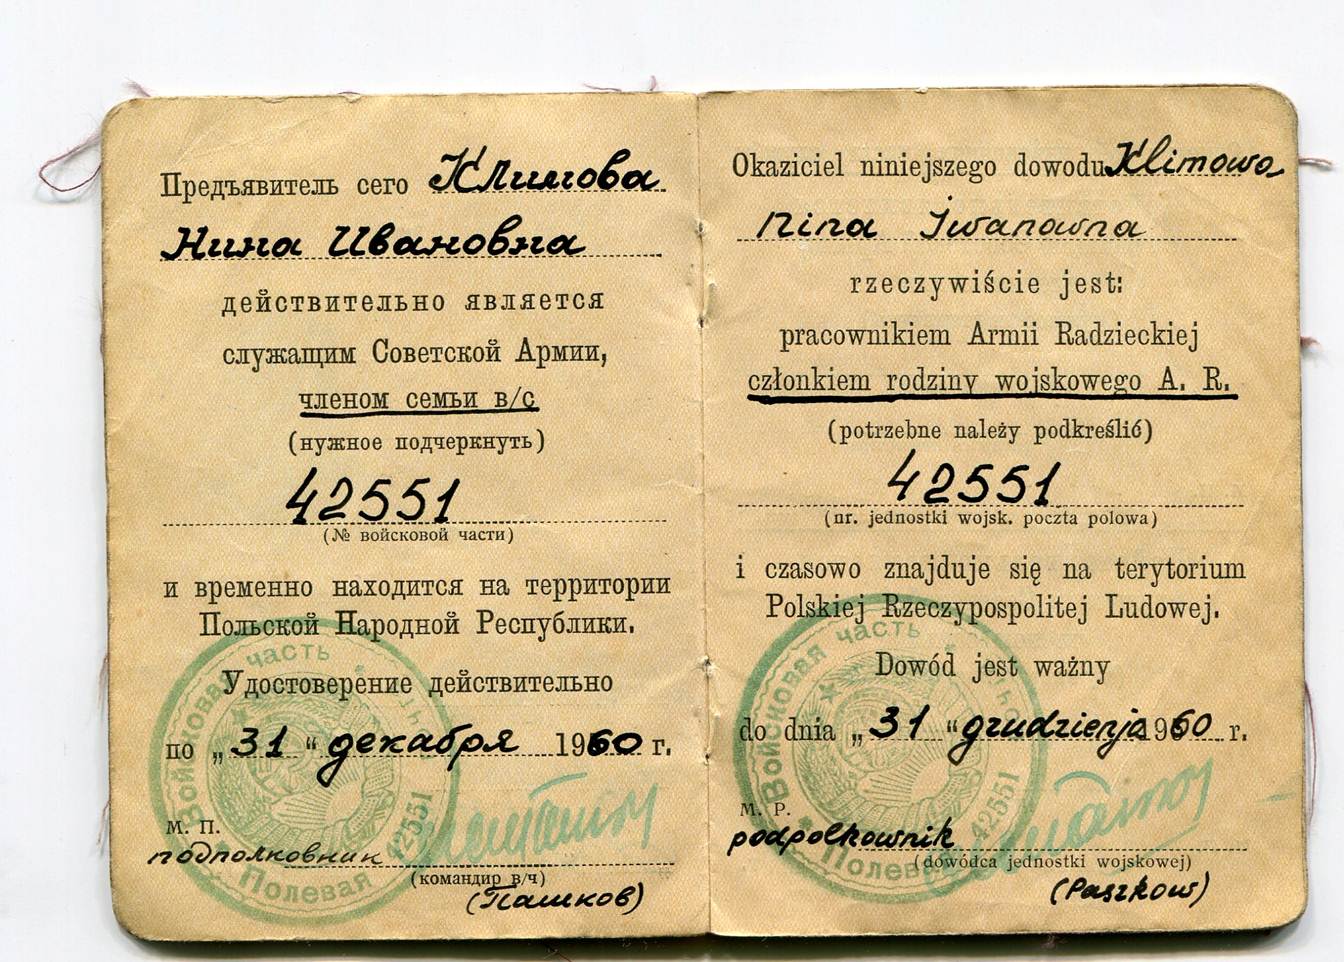 Предъявитель сего Климова
Нина Ивановна
действительно является
служащим Советской Армии,
членом семьи в/с
(нужное подчеркнуть)
42551
(№ войсковой части)
и временно находится на территории
Польской Народной Республики.
Удостоверение действительно
по „31“ декабря 1960 г.
М. П.
подполковник
(командир в/ч)
(Пашков)
Войсковая часть
Полевая
42551
Okaziciel niniejszego dowodu Klimowa
Nina Iwanowna
rzeczywiście jest:
pracownikiem Armii Radzieckiej
członkiem rodziny wojskowego A. R.
(potrzebne należy podkreślić)
42551
(nr. jednostki wojsk. poczta polowa)
i czasowo znajduje się na terytorium
Polskiej Rzeczypospolitej Ludowej.
Dowód jest ważny
do dnia „31“ grudzienja 1960 r.
M. P.
podpolkownik
(dowódca jednostki wojskowej)
(Paszkow)
Войсковая часть
Полевая
42551